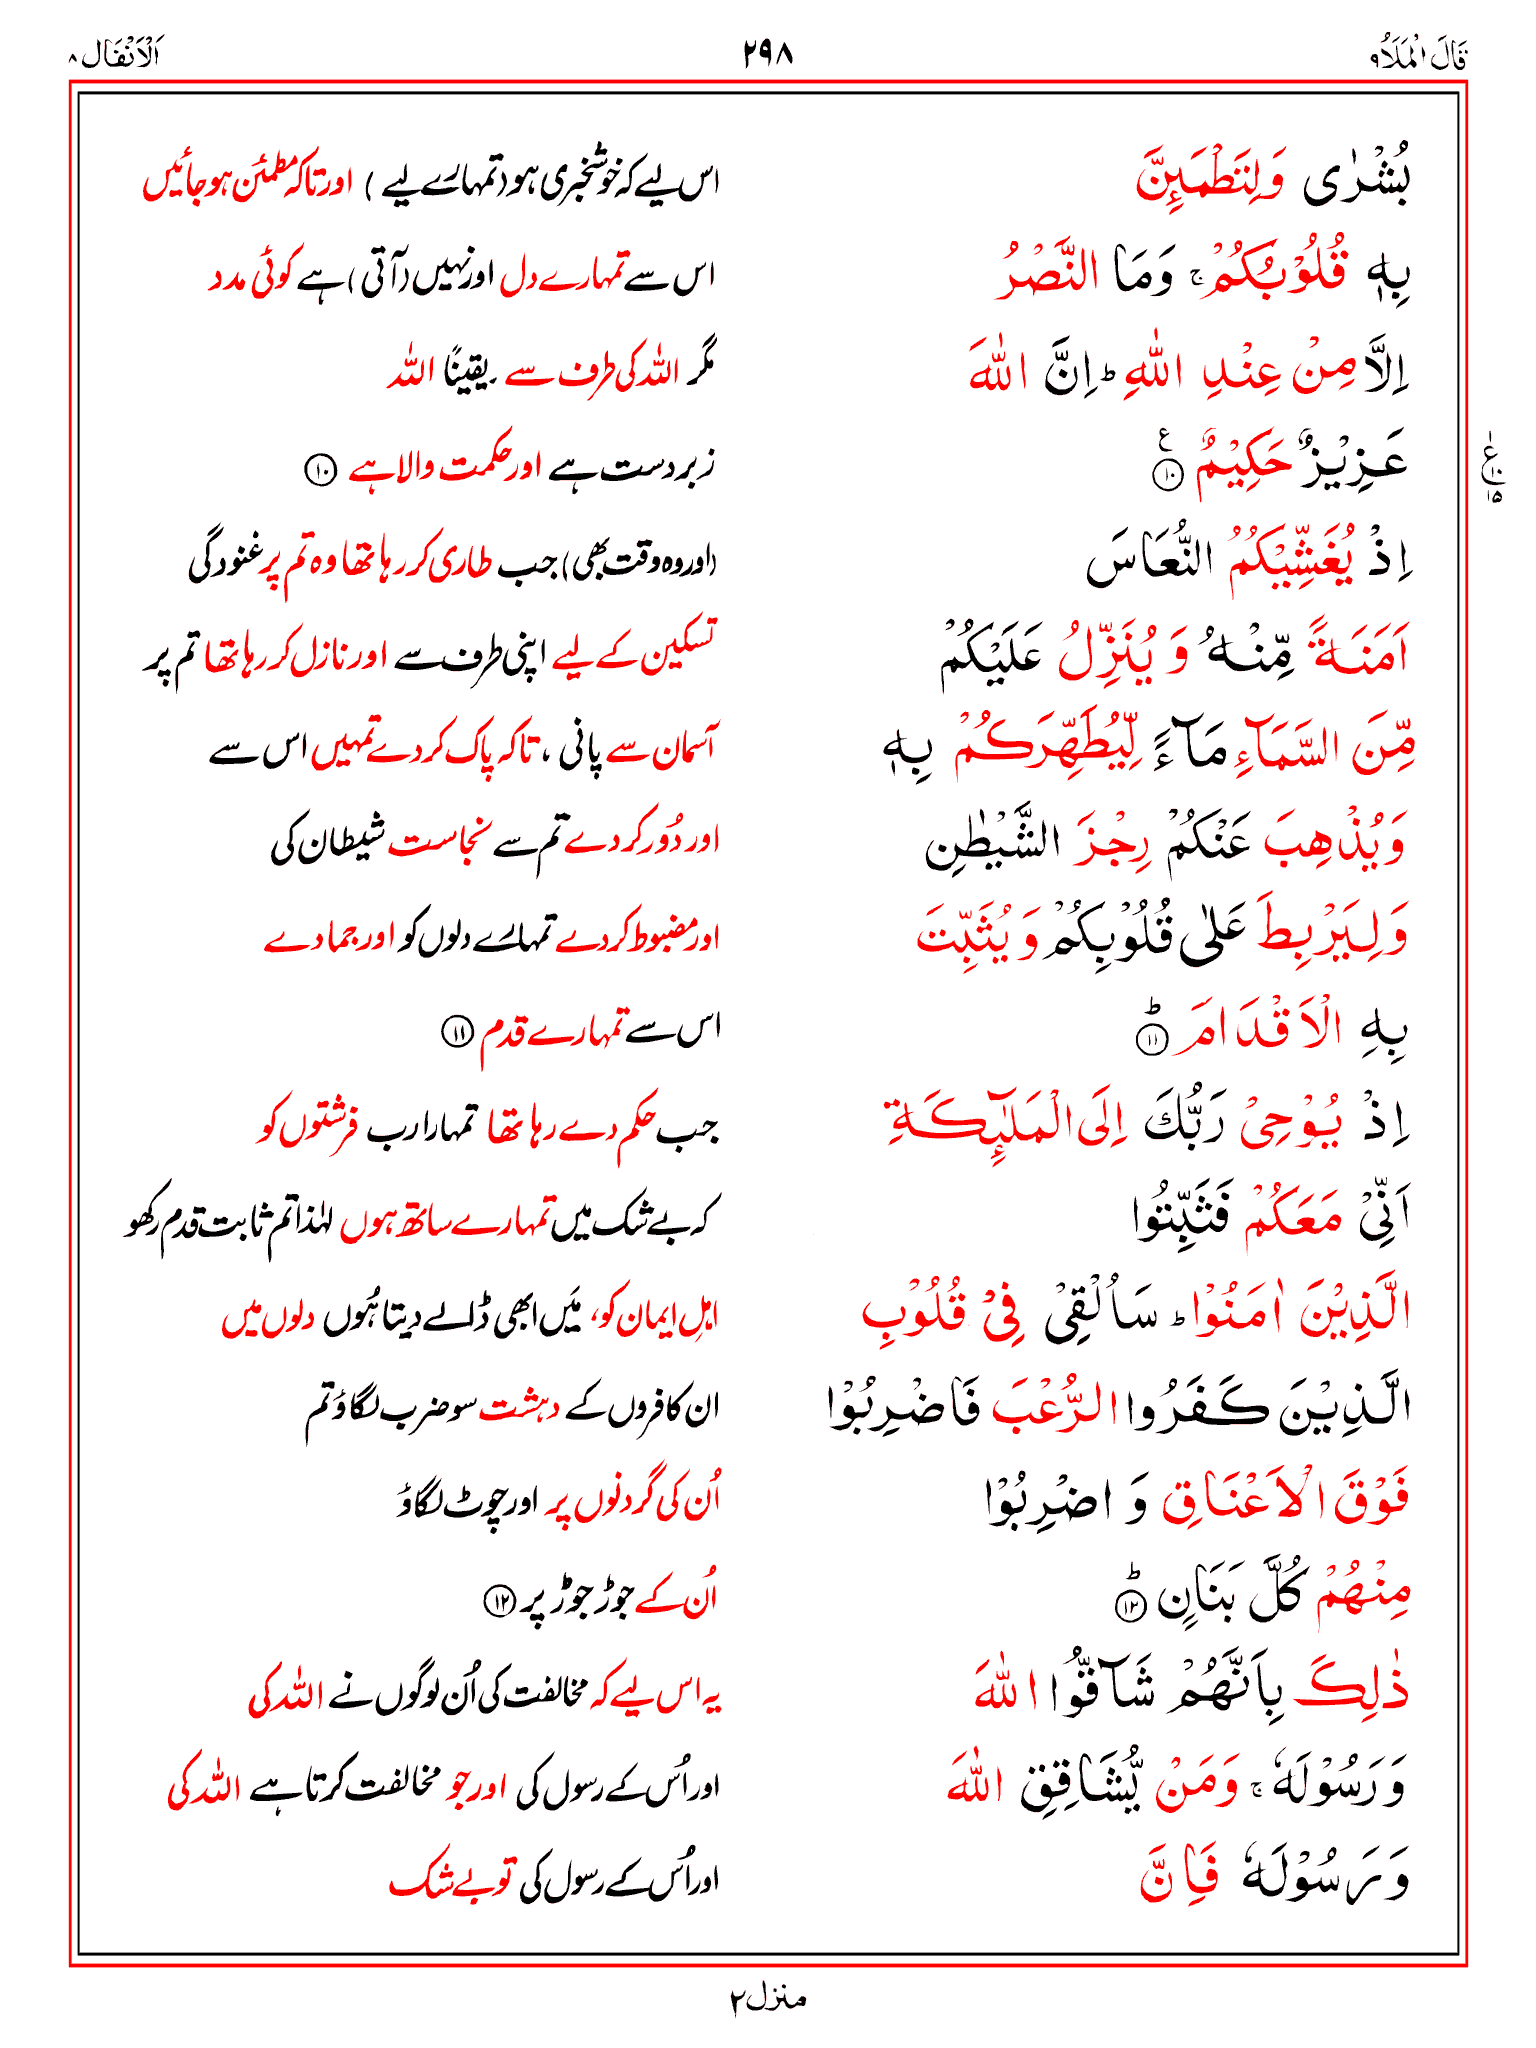 قَالَ الْمَلَاُ ۹ ۲۹۸ اَلْاَنْفَال ۸
بُشْرٰى وَلِتَطْمَىِٕنَّ اس لیے کہ خوشخبری ہو (تمہارے لیے ) اور تاکہ مطمئن ہوجائیں
بِهٖ قُلُوْبُكُمْ ۚ وَمَا النَّصْرُ اس سے تمہارے دل اور نہیں (آتی) ہے کوئی مدد
اِلَّا مِنْ عِنْدِ اللّٰهِ ؕ اِنَّ اللّٰهَ مگر اللہ کی طرف سے ۔ یقینًا اللہ
عَزِيْزٌ حَكِيْمٌ ۧ ⑩ زبردست ہے اور حکمت والا ہے ⑩
ع ۱۰ ۱۵
اِذْ يُغَشِّيْكُمُ النُّعَاسَ (اور وہ وقت بھی) جب طاری کر رہا تھا وہ تم پر غنودگی
اَمَنَةً مِّنْهُ وَ يُنَزِّلُ عَلَيْكُمْ تسکین کے لیے اپنی طرف سے اور نازل کر رہا تھا تم پر
مِّنَ السَّمَآءِ مَآءً لِّيُطَهِّرَكُمْ بِهٖ آسمان سے پانی ، تاکہ پاک کردے تمہیں اس سے
وَيُذْهِبَ عَنْكُمْ رِجْزَ الشَّيْطٰنِ اور دُور کردے تم سے نجاست شیطان کی
وَلِيَرْبِطَ عَلٰى قُلُوْبِكُمْ وَ يُثَبِّتَ اور مضبوط کردے تمہارے دلوں کو اور جمادے
بِهِ الْاَقْدَامَ ؕ ⑪ اس سے تمہارے قدم ⑪
اِذْ يُوْحِىْ رَبُّكَ اِلَى الْمَلٰٓىِٕكَةِ جب حکم دے رہا تھا تمہارا رب فرشتوں کو
اَنِّىْ مَعَكُمْ فَثَبِّتُوا کہ بے شک میں تمہارے ساتھ ہوں لہٰذا تم ثابت قدم رکھو
الَّذِيْنَ اٰمَنُوْا ؕ سَاُلْقِىْ فِىْ قُلُوْبِ اہلِ ایمان کو، میَں ابھی ڈالے دیتا ہُوں دلوں میں
الَّذِيْنَ كَفَرُوا الرُّعْبَ فَاضْرِبُوْا ان کافروں کے دہشت سو ضرب لگاؤ تم
فَوْقَ الْاَعْنَاقِ وَ اضْرِبُوْا اُن کی گردنوں پر اور چوٹ لگاؤ
مِنْهُمْ كُلَّ بَنَانٍ ؕ ⑫ اُن کے جوڑ جوڑ پر ⑫
ذٰلِكَ بِاَنَّهُمْ شَآقُّوا اللّٰهَ یہ اس لیے کہ مخالفت کی اُن لوگوں نے اللہ کی
وَرَسُوْلَهٗ ۚ وَمَنْ يُّشَاقِقِ اللّٰهَ اور اُس کے رسول کی اور جو مخالفت کرتا ہے اللہ کی
وَ رَسُوْلَهٗ فَاِنَّ اور اُس کے رسول کی تو بے شک
منزل ۲